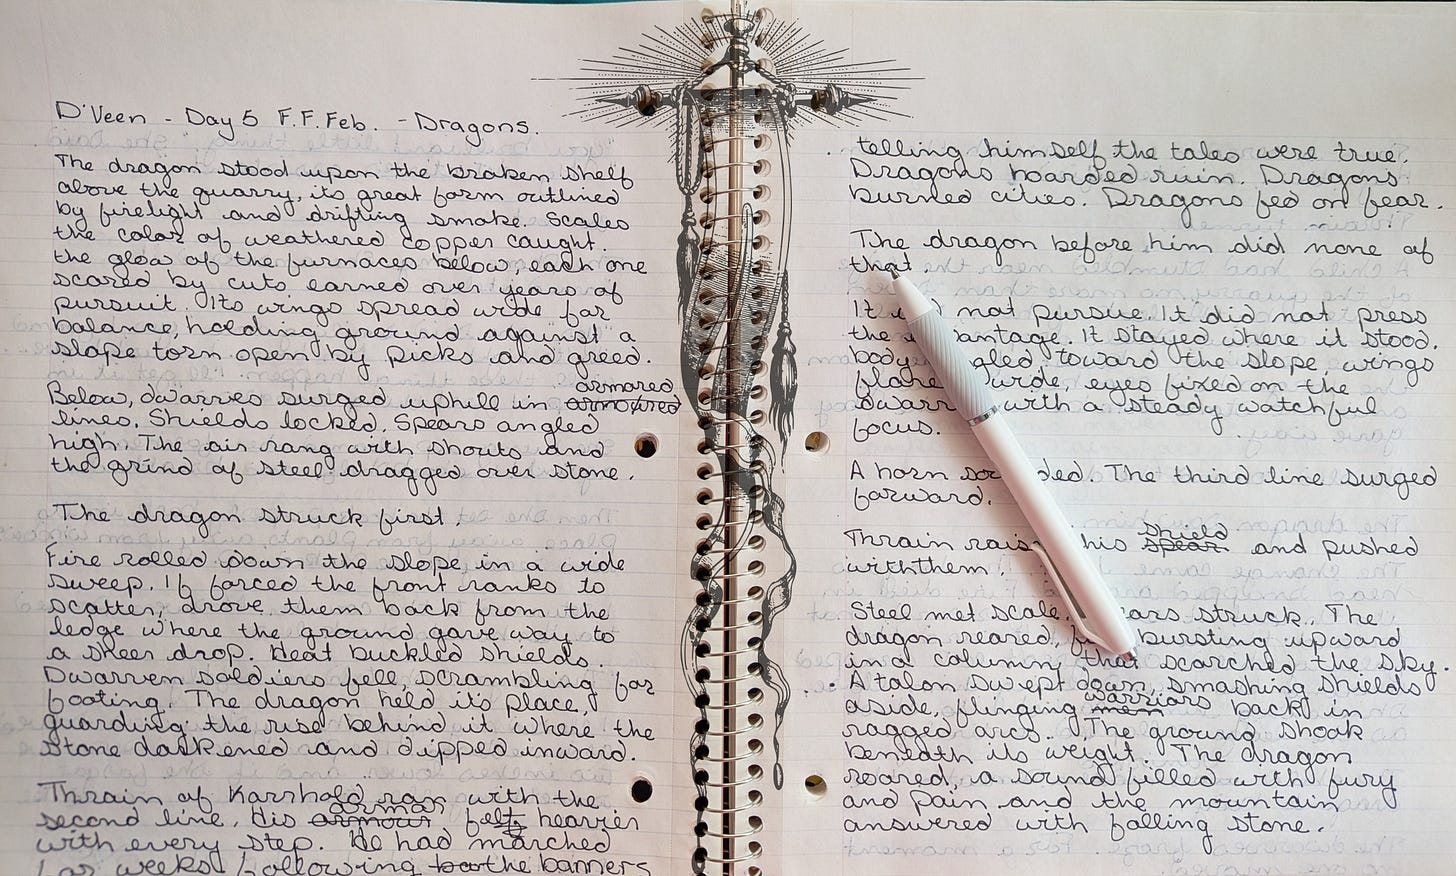 D'Veen - Day 5 F.F.Feb. - Dragons.
The dragon stood upon the broken shelf
above the quarry, its great form outlined
by firelight and drifting smoke. Scales
the color of weathered copper caught.
the glow of the furnaces below, each one
scared by cuts earned over years of
pursuit. Its wings spread wide for
balance, holding ground against a
slope torn open by picks and greed.
armored
Below, dwarves surged uphill in armoured
lines. Shields locked. Spears angled
high. The air rang with shouts and
the grind of steel dragged over stone.
The dragon struck first.
Fire rolled down the slope in a wide
sweep. If forced the front ranks to
scatter, drove them back from the
ledge where the ground gave way to
a sheer drop. Heat buckled shields.
Dwarven soldiers fell, scrambling for
footing. The dragon held its place,
guarding the rise behind it where the
stone darkened and dipped inward.
Thrain of Karrhold ran with the
armor
second line. His armour felt heavier
with every step. He had marched
for weeks following the banners
telling himself the tales were true.
Dragons hoarded ruin. Dragons
burned cities. Dragons fed on fear.
The dragon before him did none of
that
It not pursue. It did not press
the antage. It stayed where it stood.
body gled toward the slope, wings
flare wide, eyes fixed on the
dwarr with a steady watchful
focus.
A horn sou ded. The third line surged
forward.
shield
Thrain rais his spear and pushed
with them.
Steel met scale. ars struck. The
dragon reared, bursting upward
in a column that scorched the sky.
A talon swept down, smashing shields
warriors
aside, flinging men back in
ragged arcs. The ground shook
beneath its weight. The dragon
roared, a sound filled with fury
and pain and the mountain
answered with falling stone.